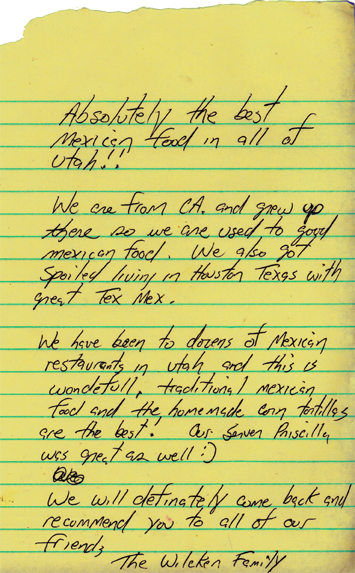 Absolutely the best
Mexican food in all of
Utah!!
We are from CA. and grew up
there so we are used to good
mexican food. We also got
Spoiled living in Houston Texas with
great Tex Mex.
We have been to dozens of Mexican
restaurants in Utah and this is
wondefull, traditional mexican
food and the homemade corn tortillas
are the best! Our Server Priscilla
was great as well :)
We will definately come back and
recommend you to all of our
friends
The Wilcken Family